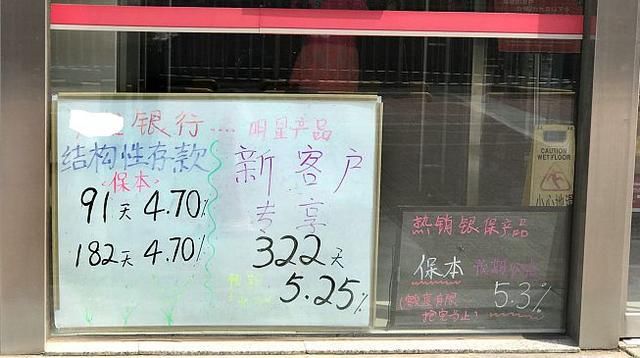 银行....明星产品
结构性存款
保本
91天 4.70%
182天 4.70%
新客户
专享
322天
5.25%
热销银保产品
保本 预期公益
5.3%
(额度有限
抢完为止)
CAUTION
WET FLOOR
小心地滑